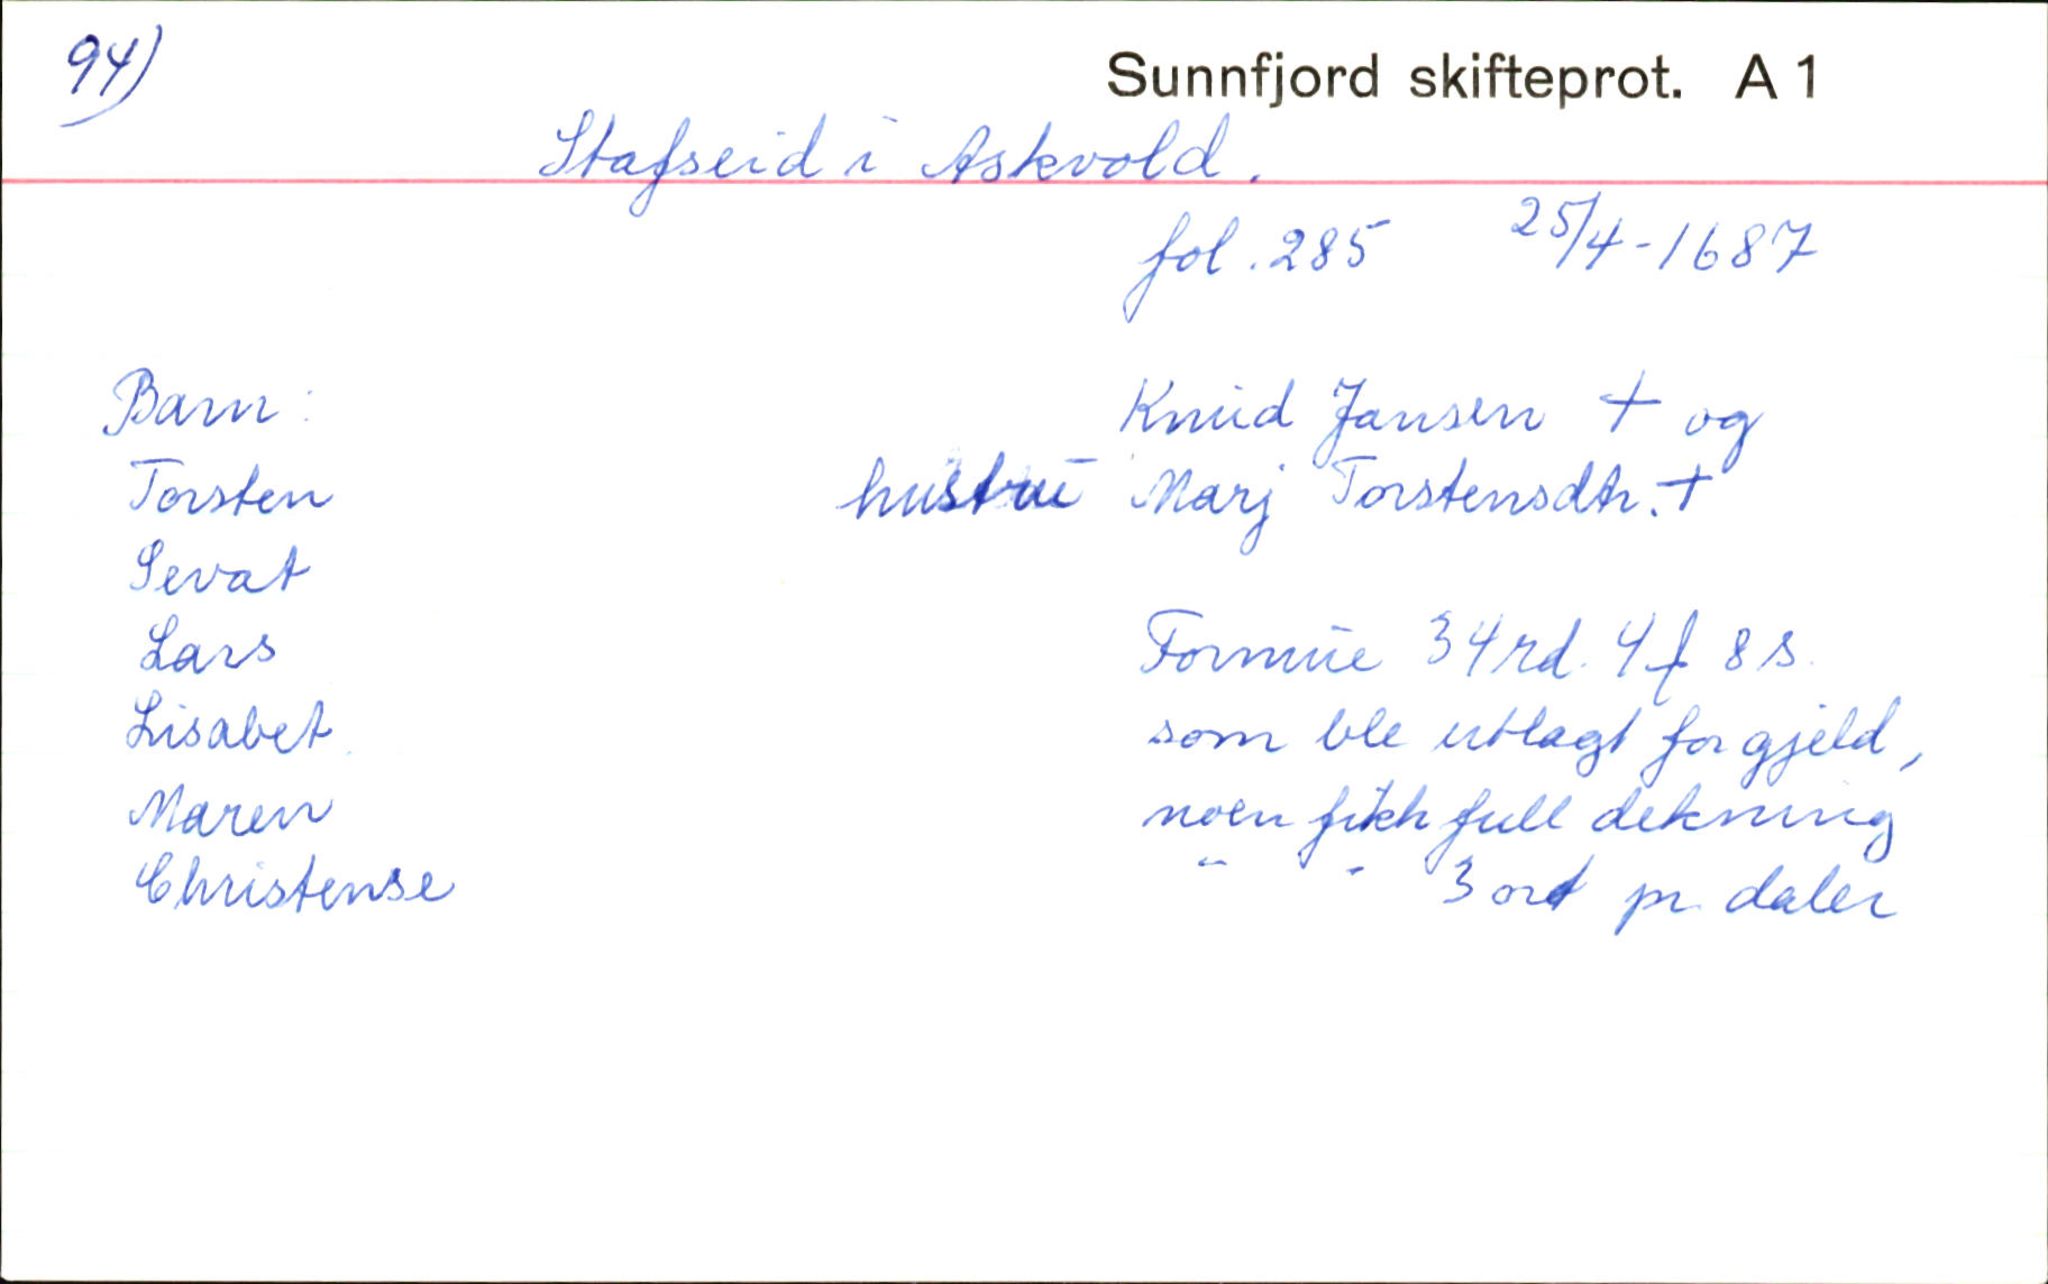 94)
Sunnfjord skifteprot. A 1
Stafseid i Askvold.
fol. 285 25/4-1687
Barn:
Torsten
Sevat
Lars
Lisabet
Maren
Christense
Knud Jansen + og
hustru Marj Torstensdtr. +
Formue 34 rd. 4 f 8 s.
som ble utlagt for gjeld,
noen fikk full dekning
" " 3 ort pr. daler